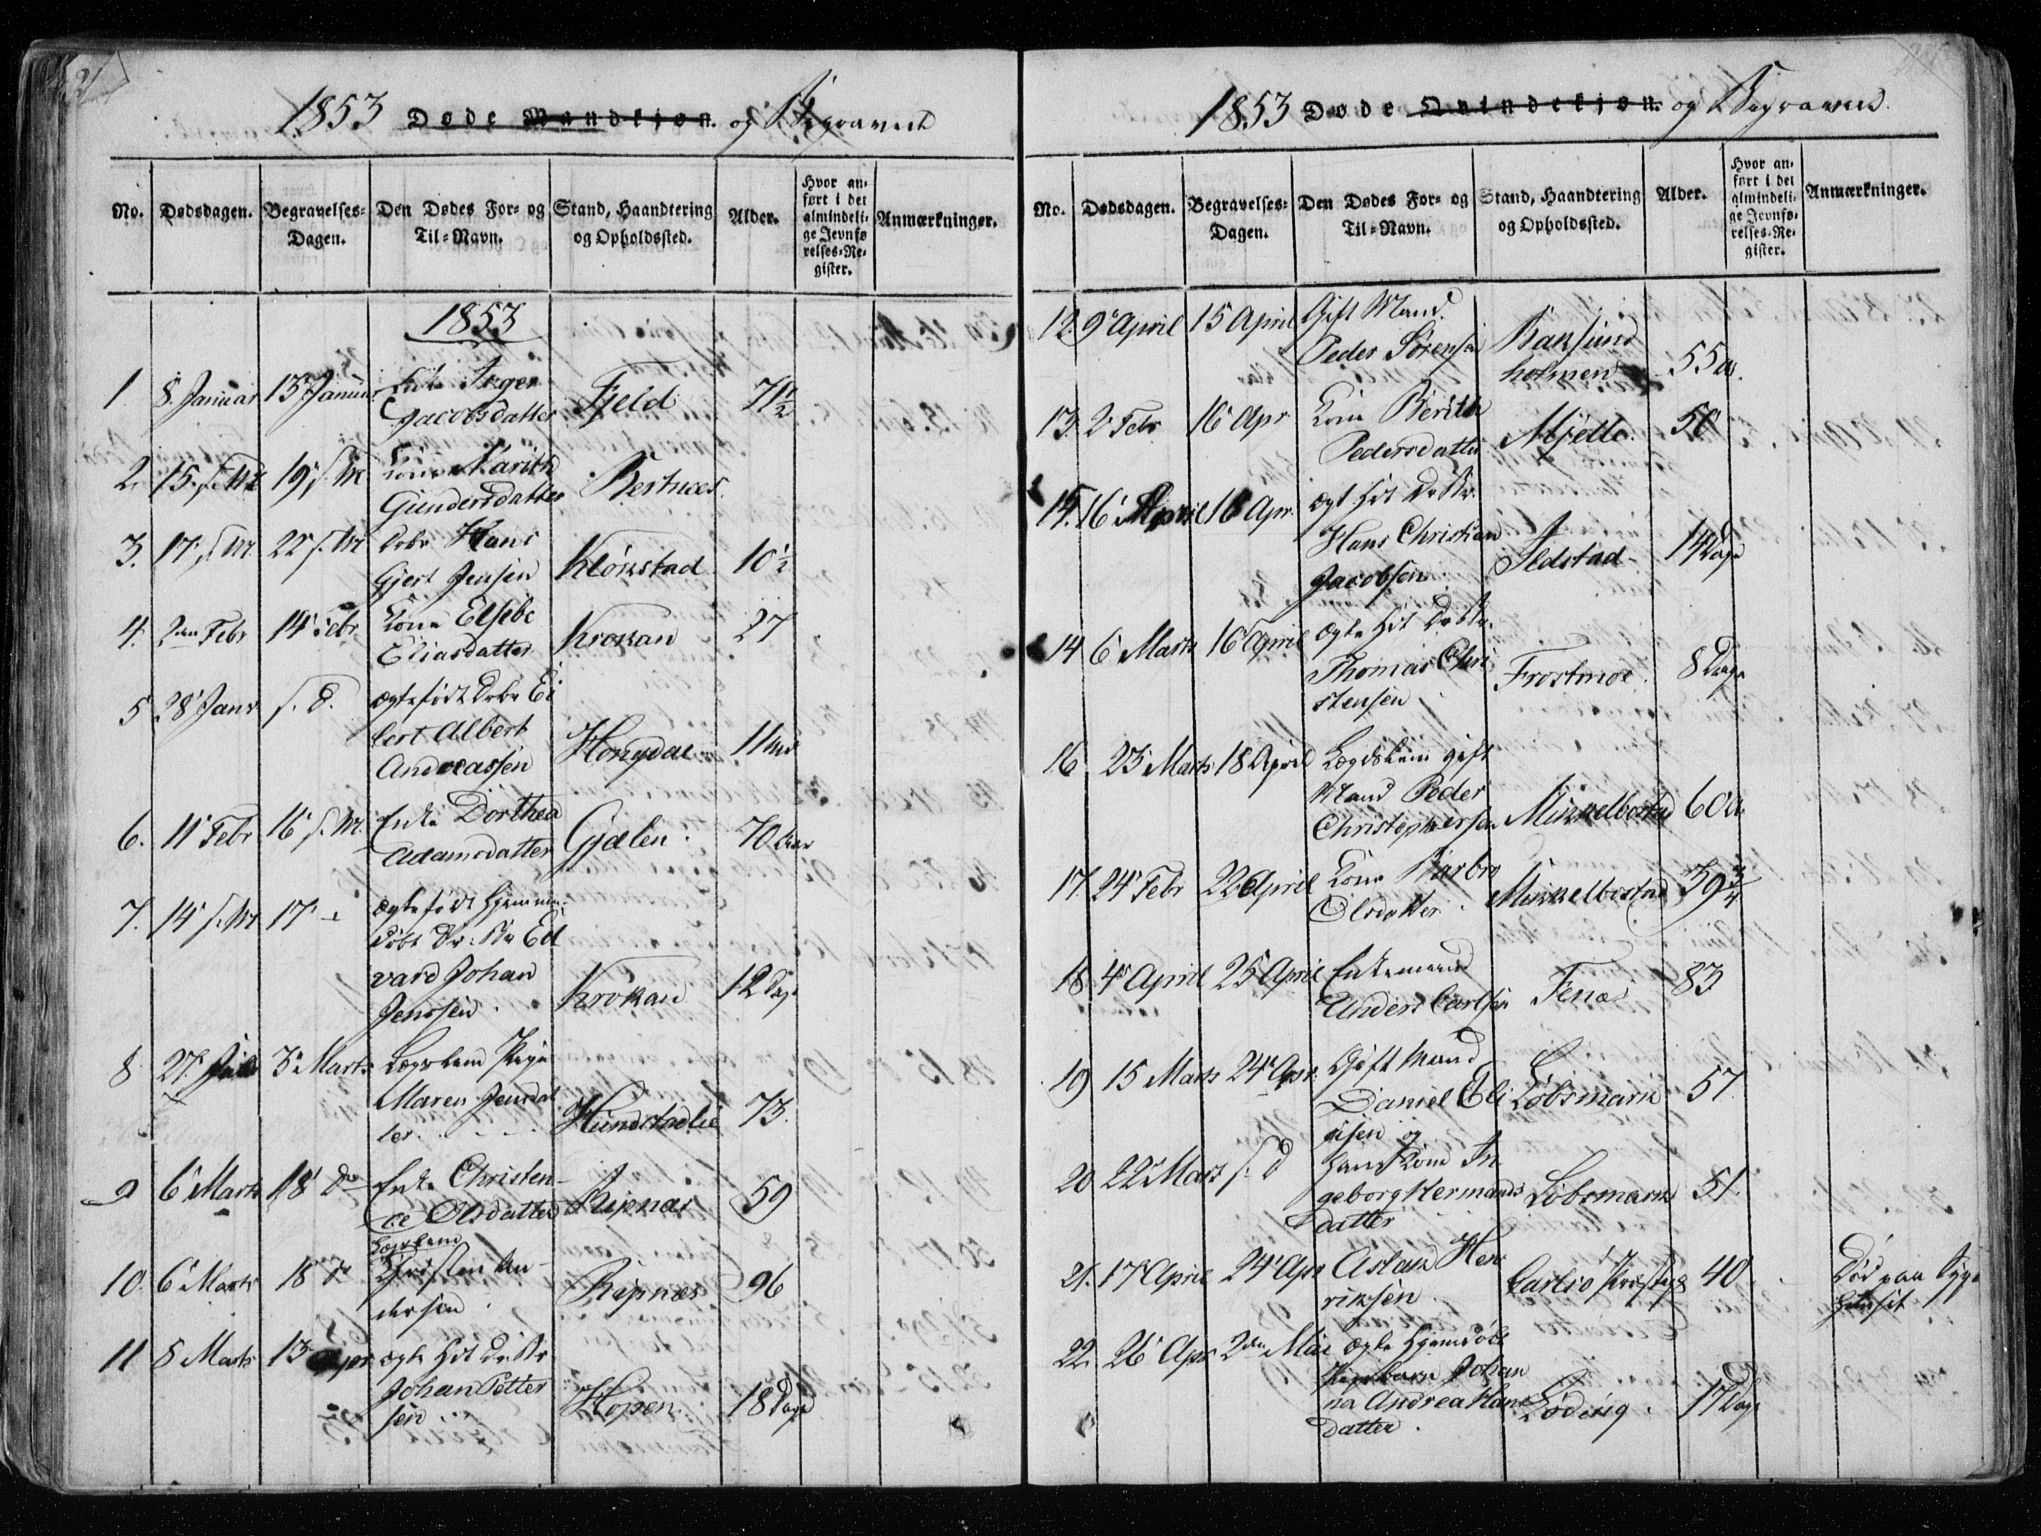 1853 Døde Mandkjøn. og Begravede
No. Dødsdagen. Begravelses-Dagen. Den Dødes For- og Til-Navn. Stand, Haandtering og Opholdssted. Alder. Hvor anført i det almindelige Jevnførelses-Register. Anmærkninger.
1853
1 8 Januar 13 Januar Enke Inger
Jacobsdatter Fjeld 71½
2. 15 s. M 19 s. M Kone Marith
Gundersdatter Bertnæs.
3. 17 s. M 22 s. M Hans
Gjert Jensen Kløkstad 10½
4. 2den Febr 14 Febr Kone Elsebe
Eliasdatter Krokan 27
5 28 Janr s. D. ægtefødt Ei
lert Albert
Andreassen Hongdal 11
6. 11 Febr 16 s. M. Enke Dorthea
Adamsdatter Gjælen. 70 Aar
7. 14 s. M 17 ægtefødt hjemme
døbt Ed
vard Johan
Jenssen. Krokan 12 Dage
8 27 3 Marts Lægslem Pige
Maren Jensdat
ter. Hundstadlie 73.
9 6 Marts 18 Do Enke Christen-
ce Olsdatter Ripnæs 59
Lægslem
10. 6 Marts 18 Christen An-
dersen Ripnæs 96
11 8 Marts 13 Apr ægte
Johan Petter
sen Hopen. 18 Dage
1853 Døde Qvindekjøn. og Begravede.
No. Dødsdagen. Begravelses-Dagen. Den Dødes For- og Til-Navn. Stand, Haandtering og Opholdssted. Alder. Hvor anført i det almindelige Jevnførelses-Register. Anmærkninger.
12. 9 April 15 April Gift Mand
Peder Sørensen Baksund
holmen 55
13. 2 Febr 16 Apr Kone Berith
Pedersdatter Mjelle. 50
15. 16 April 16 Apr. ægte
Hans Christian
Jacobsen Ildstad 14 Dage
14 6 Marts 16 April ægte
Thomas Chri
stensen Frostmoe. 8 Dage
16. 23 Marts 18 April Lægdslem gift
Mand Peder
Christophersen Mikkelbostad 60
17. 24 Febr 22 April Kone Barbro
Olsdatter Mikkelbostad 39¾
18. 4 April 25 April Enkemand
Anders Carlsen Fenæs 83
19 15 Marts 24 Apr. Gift Mand
Daniel Eli
asen og Løbsmark 57
20 22 Marts s. d hans Kone In
geborg Hermands
datter Løbsmark 51.
21. 17 April 24 Apr Aslak Hen
riksen Carlsø 40 Død paa Syge
huset
22. 26 Apr 2den Mai ægte hjemdøbt
Pigebarn Johan
na Andrea Hans
datter. Løding. 17 Dage